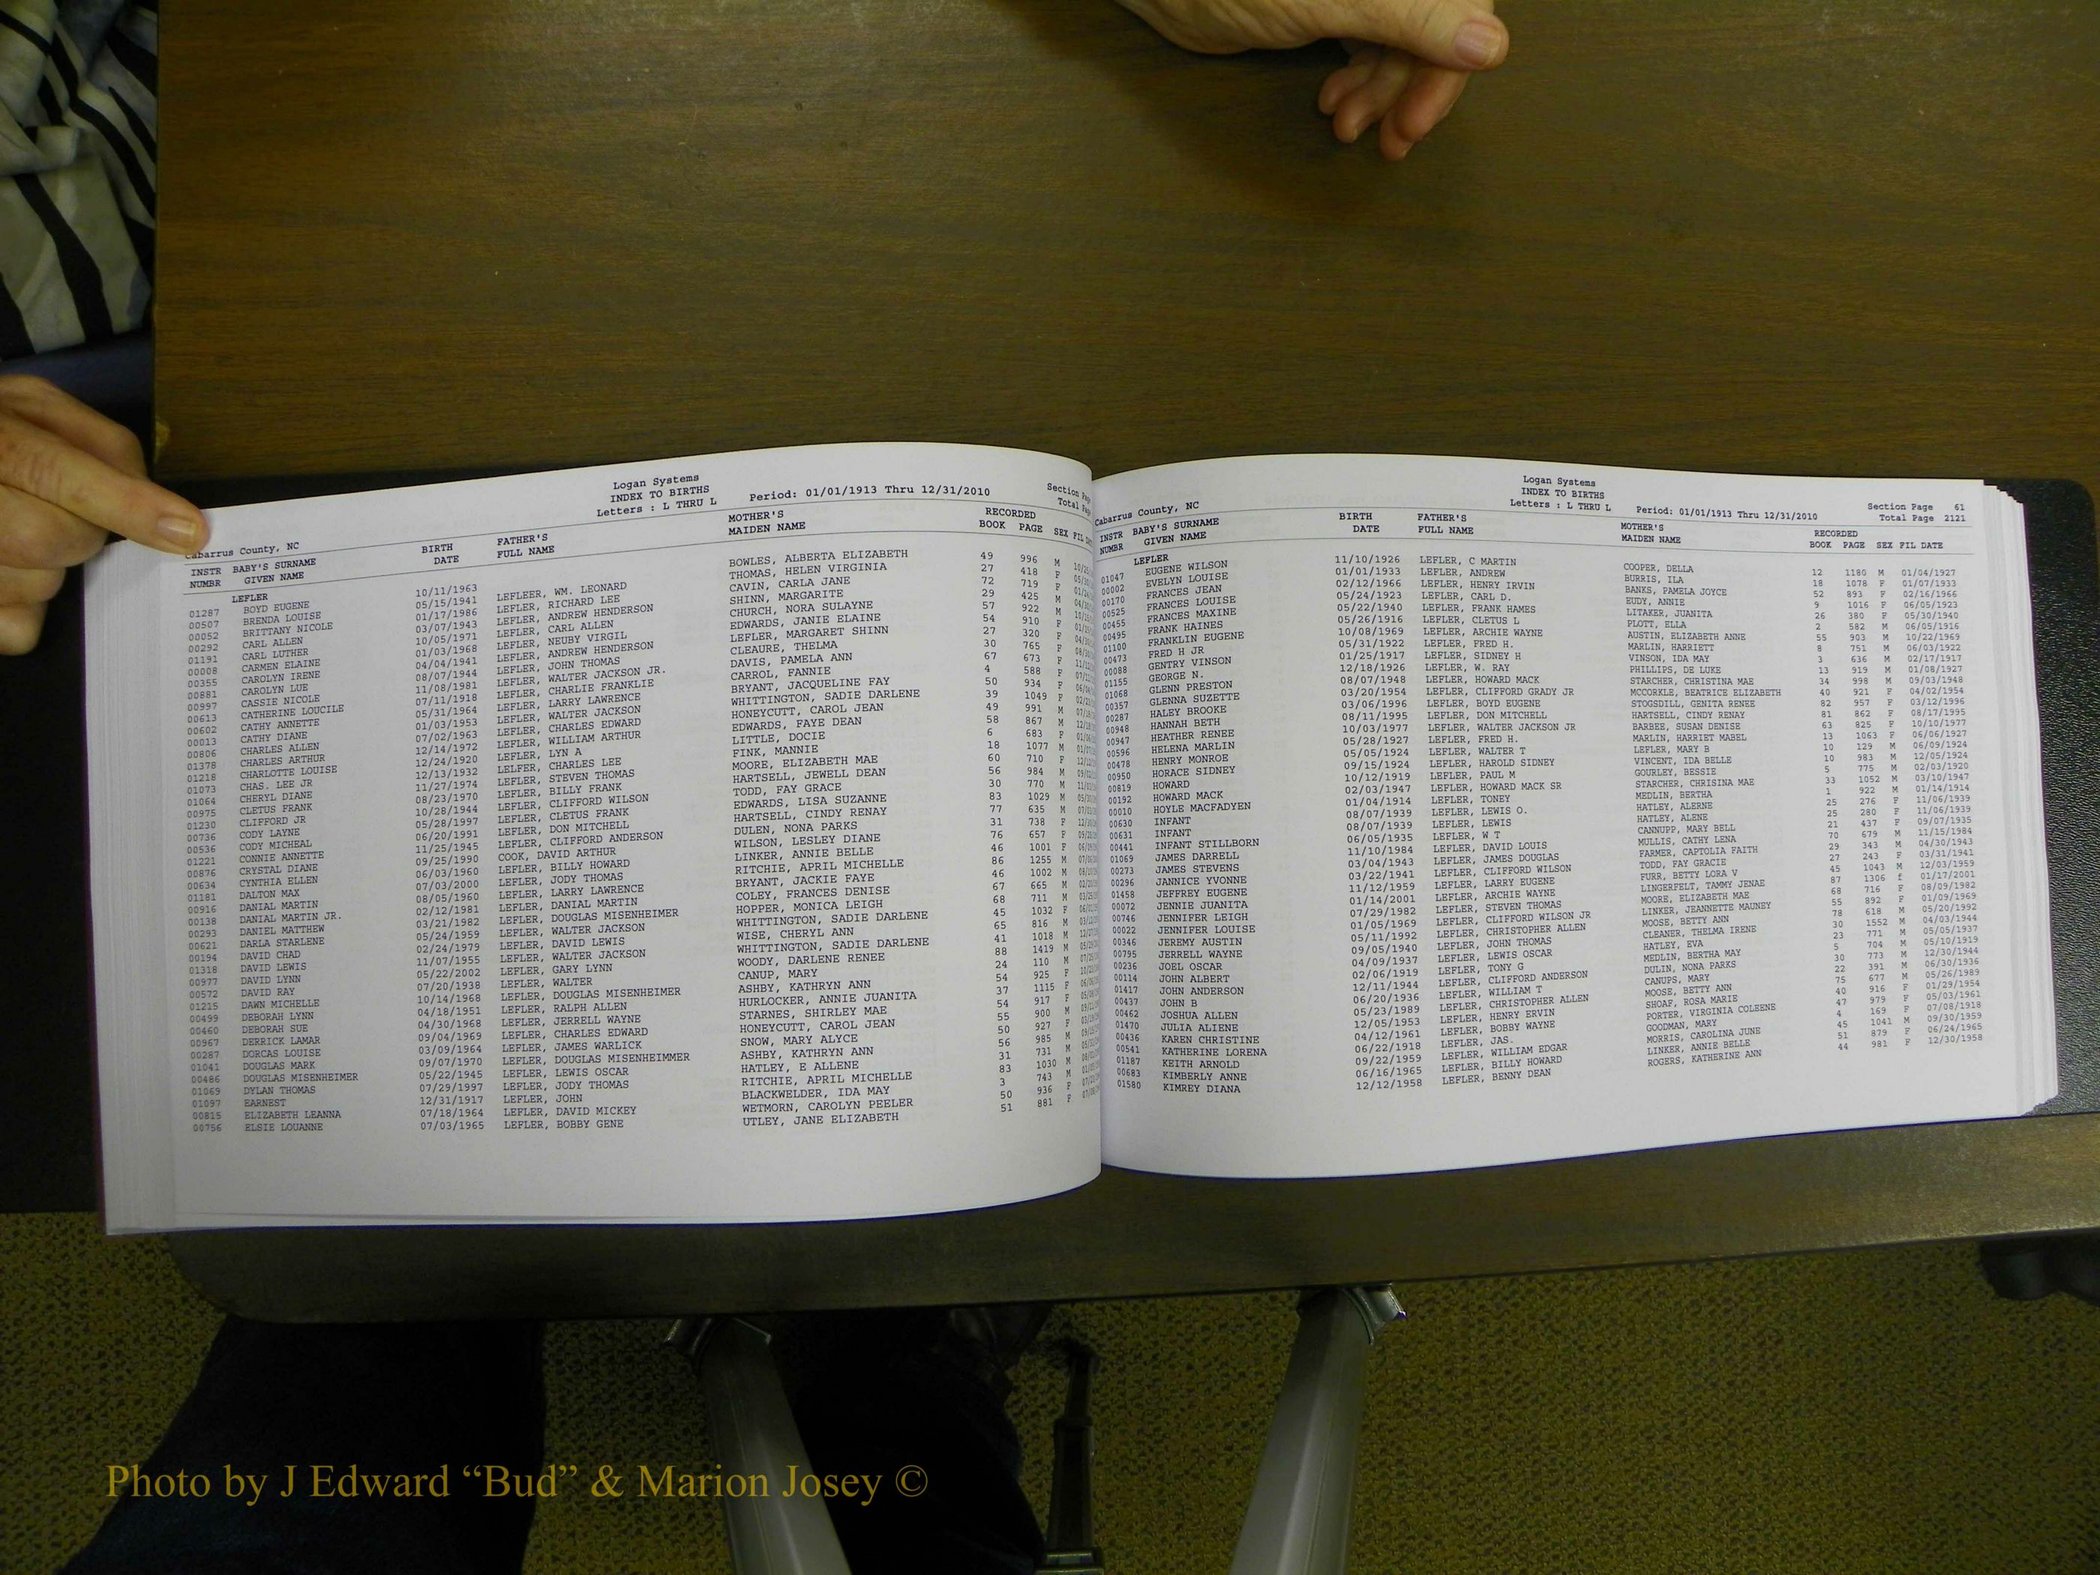 Logan Systems
INDEX TO BIRTHS
Letters : L THRU L
Period: 01/01/1913 Thru 12/31/2010
Cabarrus County, NC
INSTR NUMBR
BABY'S SURNAME
GIVEN NAME
BIRTH DATE
FATHER'S FULL NAME
MOTHER'S MAIDEN NAME
RECORDED
BOOK PAGE SEX
LEFLER
01287 BOYD EUGENE
00507 BRENDA LOUISE
00052 BRITTANY NICOLE
00292 CARL ALLEN
01191 CARL LUTHER
00008 CARMEN ELAINE
00355 CAROLYN IRENE
00881 CAROLYN LUE
00997 CASSIE NICOLE
00613 CATHERINE LOUCILE
00602 CATHY ANNETTE
00013 CATHY DIANE
00806 CHARLES ALLEN
01378 CHARLES ARTHUR
01218 CHARLOTTE LOUISE
01073 CHAS. LEE JR
01064 CHERYL DIANE
00975 CLETUS FRANK
01230 CLIFFORD JR
00736 CODY LAYNE
00536 CODY MICHEAL
01221 CONNIE ANNETTE
00876 CRYSTAL DIANE
00634 CYNTHIA ELLEN
01181 DALTON MAX
00916 DANIAL MARTIN
00138 DANIAL MARTIN JR.
00293 DANIEL MATTHEW
00621 DARLA STARLENE
00194 DAVID CHAD
01318 DAVID LEWIS
00977 DAVID LYNN
00572 DAVID RAY
01215 DAWN MICHELLE
00499 DEBORAH LYNN
00460 DEBORAH SUE
00967 DERRICK LAMAR
00287 DORCAS LOUISE
01041 DOUGLAS MARK
00486 DOUGLAS MISENHEIMER
01069 DYLAN THOMAS
01097 EARNEST
00815 ELIZABETH LEANNA
00756 ELSIE LOUANNE
10/11/1963
05/15/1941
01/17/1986
03/07/1943
10/05/1971
01/03/1968
04/04/1941
08/07/1944
11/08/1981
07/11/1918
05/31/1964
01/03/1953
07/02/1963
12/14/1972
12/24/1920
12/13/1932
11/27/1974
08/23/1970
10/28/1944
05/28/1997
06/20/1991
11/25/1945
09/25/1990
06/03/1960
07/03/2000
08/05/1960
02/12/1981
03/21/1982
05/24/1959
02/24/1979
11/07/1955
05/22/2002
07/20/1938
10/14/1968
04/18/1951
04/30/1968
09/04/1969
03/09/1964
09/07/1970
05/22/1945
07/29/1997
12/31/1917
07/18/1964
07/03/1965
LEFLEER, WM. LEONARD
LEFLER, RICHARD LEE
LEFLER, ANDREW HENDERSON
LEFLER, CARL ALLEN
LEFLER, NEUBY VIRGIL
LEFLER, ANDREW HENDERSON
LEFLER, JOHN THOMAS
LEFLER, WALTER JACKSON JR.
LEFLER, CHARLIE FRANKLIE
LEFLER, LARRY LAWRENCE
LEFLER, WALTER JACKSON
LEFLER, CHARLES EDWARD
LEFLER, WILLIAM ARTHUR
LEFLER, LYN A
LELFER, CHARLES LEE
LEFLER, STEVEN THOMAS
LEFLER, BILLY FRANK
LEFLER, CLIFFORD WILSON
LEFLER, CLETUS FRANK
LEFLER, DON MITCHELL
LEFLER, CLIFFORD ANDERSON
COOK, DAVID ARTHUR
LEFLER, BILLY HOWARD
LEFLER, JODY THOMAS
LEFLER, LARRY LAWRENCE
LEFLER, DANIAL MARTIN
LEFLER, DOUGLAS MISENHEIMER
LEFLER, WALTER JACKSON
LEFLER, DAVID LEWIS
LEFLER, WALTER JACKSON
LEFLER, GARY LYNN
LEFLER, WALTER
LEFLER, DOUGLAS MISENHEIMER
LEFLER, RALPH ALLEN
LEFLER, JERRELL WAYNE
LEFLER, CHARLES EDWARD
LEFLER, JAMES WARLICK
LEFLER, DOUGLAS MISENHEIMMER
LEFLER, LEWIS OSCAR
LEFLER, JODY THOMAS
LEFLER, JOHN
LEFLER, DAVID MICKEY
LEFLER, BOBBY GENE
BOWLES, ALBERTA ELIZABETH
THOMAS, HELEN VIRGINIA
CAVIN, CARLA JANE
SHINN, MARGARITE
CHURCH, NORA SULAYNE
EDWARDS, JANIE ELAINE
LEFLER, MARGARET SHINN
CLEAURE, THELMA
DAVIS, PAMELA ANN
CARROL, FANNIE
BRYANT, JACQUELINE FAY
WHITTINGTON, SADIE DARLENE
HONEYCUTT, CAROL JEAN
EDWARDS, FAYE DEAN
LITTLE, DOCIE
FINK, MANNIE
MOORE, ELIZABETH MAE
HARTSELL, JEWELL DEAN
TODD, FAY GRACE
EDWARDS, LISA SUZANNE
HARTSELL, CINDY RENAY
DULEN, NONA PARKS
WILSON, LESLEY DIANE
LINKER, ANNIE BELLE
RITCHIE, APRIL MICHELLE
BRYANT, JACKIE FAYE
COLEY, FRANCES DENISE
HOPPER, MONICA LEIGH
WHITTINGTON, SADIE DARLENE
WISE, CHERYL ANN
WHITTINGTON, SADIE DARLENE
WOODY, DARLENE RENEE
CANUP, MARY
ASHBY, KATHRYN ANN
HURLOCKER, ANNIE JUANITA
STARNES, SHIRLEY MAE
HONEYCUTT, CAROL JEAN
SNOW, MARY ALYCE
ASHBY, KATHRYN ANN
HATLEY, E ALLENE
RITCHIE, APRIL MICHELLE
BLACKWELDER, IDA MAY
WETMORN, CAROLYN PEELER
UTLEY, JANE ELIZABETH
49 996 M
27 418 F
72 719 F
29 425 M
57 922 M
54 910 F
27 320 F
30 765 F
67 673 F
4 588 F
50 934 F
39 1049 F
49 991 M
58 867 M
6 683 F
18 1077 M
60 710 F
56 984 M
30 770 M
83 1029 M
77 635 M
31 738 F
76 657 F
46 1001 F
86 1255 M
46 1002 M
67 665 M
68 711 M
45 1032 F
65 816 M
41 1018 M
88 1419 M
24 110 M
54 925 F
37 1115 F
54 917 F
55 900 M
50 927 F
56 985 M
31 731 M
83 1030 M
3 743 M
50 936 F
51 881 F
Logan Systems
INDEX TO BIRTHS
Letters : L THRU L
Period: 01/01/1913 Thru 12/31/2010
Section Page 61
Total Page 2121
Cabarrus County, NC
INSTR NUMBR
BABY'S SURNAME
GIVEN NAME
BIRTH DATE
FATHER'S FULL NAME
MOTHER'S MAIDEN NAME
RECORDED
BOOK PAGE SEX FIL DATE
LEFLER
01047 EUGENE WILSON
00002 EVELYN LOUISE
00170 FRANCES JEAN
00525 FRANCES LOUISE
00455 FRANCES MAXINE
00495 FRANK HAINES
01100 FRANKLIN EUGENE
00473 FRED H JR
00088 GENTRY VINSON
01155 GEORGE N.
01068 GLENN PRESTON
00357 GLENNA SUZETTE
00287 HALEY BROOKE
00948 HANNAH BETH
00947 HEATHER RENEE
00596 HELENA MARLIN
00478 HENRY MONROE
00950 HORACE SIDNEY
00819 HOWARD
00192 HOWARD MACK
00010 HOYLE MACFADYEN
00630 INFANT
00631 INFANT
00441 INFANT STILLBORN
01069 JAMES DARRELL
00273 JAMES STEVENS
00296 JANNICE YVONNE
01458 JEFFREY EUGENE
00072 JENNIE JUANITA
00746 JENNIFER LEIGH
00022 JENNIFER LOUISE
00346 JEREMY AUSTIN
00795 JERRELL WAYNE
00236 JOEL OSCAR
00114 JOHN ALBERT
01417 JOHN ANDERSON
00437 JOHN B
00462 JOSHUA ALLEN
01470 JULIA ALIENE
00436 KAREN CHRISTINE
00541 KATHERINE LORENA
01187 KEITH ARNOLD
00683 KIMBERLY ANNE
01580 KIMREY DIANA
11/10/1926
01/01/1933
02/12/1966
05/24/1923
05/22/1940
05/26/1916
10/08/1969
05/31/1922
01/25/1917
12/18/1926
08/07/1948
03/20/1954
03/06/1996
08/11/1995
10/03/1977
05/28/1927
05/05/1924
09/15/1924
10/12/1919
02/03/1947
01/04/1914
08/07/1939
08/07/1939
06/05/1935
11/10/1984
03/04/1943
03/22/1941
11/12/1959
01/14/2001
07/29/1982
01/05/1969
05/11/1992
09/05/1940
04/09/1937
02/06/1919
12/11/1944
06/20/1936
05/23/1989
12/05/1953
04/12/1961
06/22/1918
09/22/1959
06/16/1965
12/12/1958
LEFLER, C MARTIN
LEFLER, ANDREW
LEFLER, HENRY IRVIN
LEFLER, CARL D.
LEFLER, FRANK HAMES
LEFLER, CLETUS L
LEFLER, ARCHIE WAYNE
LEFLER, FRED H.
LEFLER, SIDNEY H
LEFLER, W. RAY
LEFLER, HOWARD MACK
LEFLER, CLIFFORD GRADY JR
LEFLER, BOYD EUGENE
LEFLER, DON MITCHELL
LEFLER, WALTER JACKSON JR
LEFLER, FRED H.
LEFLER, WALTER T
LEFLER, HAROLD SIDNEY
LEFLER, PAUL M
LEFLER, HOWARD MACK SR
LEFLER, TONEY
LEFLER, LEWIS O.
LEFLER, LEWIS
LEFLER, W T
LEFLER, DAVID LOUIS
LEFLER, JAMES DOUGLAS
LEFLER, CLIFFORD WILSON
LEFLER, LARRY EUGENE
LEFLER, ARCHIE WAYNE
LEFLER, STEVEN THOMAS
LEFLER, CLIFFORD WILSON JR
LEFLER, CHRISTOPHER ALLEN
LEFLER, JOHN THOMAS
LEFLER, LEWIS OSCAR
LEFLER, TONY G
LEFLER, CLIFFORD ANDERSON
LEFLER, WILLIAM T
LEFLER, CHRISTOPHER ALLEN
LEFLER, HENRY ERVIN
LEFLER, BOBBY WAYNE
LEFLER, JAS.
LEFLER, WILLIAM EDGAR
LEFLER, BILLY HOWARD
LEFLER, BENNY DEAN
COOPER, DELLA
BURRIS, ILA
BANKS, PAMELA JOYCE
EUDY, ANNIE
LITAKER, JUANITA
PLOTT, ELLA
AUSTIN, ELIZABETH ANNE
MARLIN, HARRIETT
VINSON, IDA MAY
PHILLIPS, DE LUKE
STARCHER, CHRISTINA MAE
MCCORKLE, BEATRICE ELIZABETH
STOGSDILL, GENITA RENEE
HARTSELL, CINDY RENAY
BARBEE, SUSAN DENISE
MARLIN, HARRIET MABEL
LEFLER, MARY B
VINCENT, IDA BELLE
GOURLEY, BESSIE
STARCHER, CHRISINA MAE
MEDLIN, BERTHA
HATLEY, ALERNE
HATLEY, ALENE
CANNUPP, MARY BELL
MULLIS, CATHY LENA
FARMER, CAPTOLIA FAITH
TODD, FAY GRACIE
FURR, BETTY LORA V
LINGERFELT, TAMMY JENAE
MOORE, ELIZABETH MAE
LINKER, JEANNETTE MAUNEY
MOOSE, BETTY ANN
CLEANER, THELMA IRENE
HATLEY, EVA
MEDLIN, BERTHA MAY
DULIN, NONA PARKS
CANUPS, MARY
MOOSE, BETTY ANN
SHOAF, ROSA MARIE
PORTER, VIRGINIA COLEENE
GOODMAN, MARY
MORRIS, CAROLINA JUNE
LINKER, ANNIE BELLE
ROGERS, KATHERINE ANN
12 1180 M 01/04/1927
18 1078 F 01/07/1933
52 893 F 02/16/1966
9 1016 F 06/05/1923
26 380 F 05/30/1940
2 582 M 06/05/1916
55 903 M 10/22/1969
8 751 M 06/03/1922
3 636 M 02/17/1917
13 919 M 01/08/1927
34 998 M 09/03/1948
40 921 F 04/02/1954
82 957 F 03/12/1996
81 862 F 08/17/1995
63 825 F 10/10/1977
13 1063 F 06/06/1927
10 129 M 06/09/1924
10 983 M 12/05/1924
5 775 M 02/03/1920
33 1052 M 03/10/1947
1 922 M 01/14/1914
25 276 F 11/06/1939
25 280 F 11/06/1939
21 437 F 09/07/1935
70 679 M 11/15/1984
29 343 M 04/30/1943
27 243 F 03/31/1941
45 1043 M 12/03/1959
87 1306 f 01/17/2001
68 716 F 08/09/1982
55 892 F 01/09/1969
78 618 M 05/20/1992
30 1552 M 04/03/1944
23 771 M 05/05/1937
5 704 M 05/10/1919
30 773 M 12/30/1944
22 391 M 06/30/1936
75 677 M 05/26/1989
40 916 F 01/29/1954
47 979 F 05/03/1961
4 169 F 07/08/1918
45 1041 M 09/30/1959
51 879 F 06/24/1965
44 981 F 12/30/1958
Photo by J Edward “Bud” & Marion Josey ©